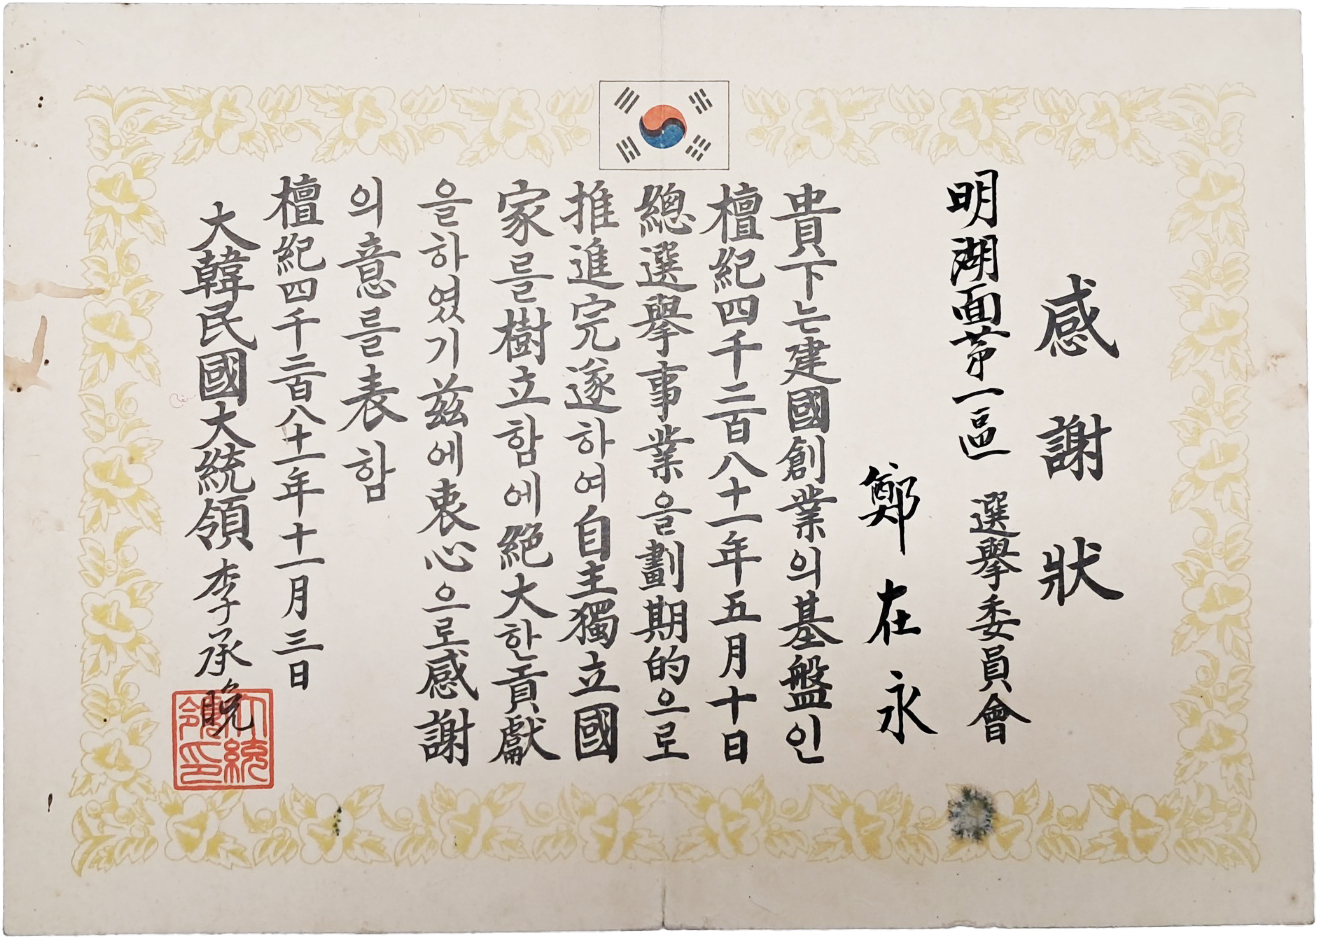 感謝狀
明湖面第一區 選擧委員會
鄭在永
貴下는建國創業의基盤인
檀紀四千二百八十一年五月十日
總選擧事業을劃期的으로
推進完遂하여自主獨立國
家를樹立함에絶大한貢獻
을하였기玆에衷心으로感謝
의意를表함
檀紀四千二百八十一年十一月三日
大韓民國大統領 李承晩
大統
領印